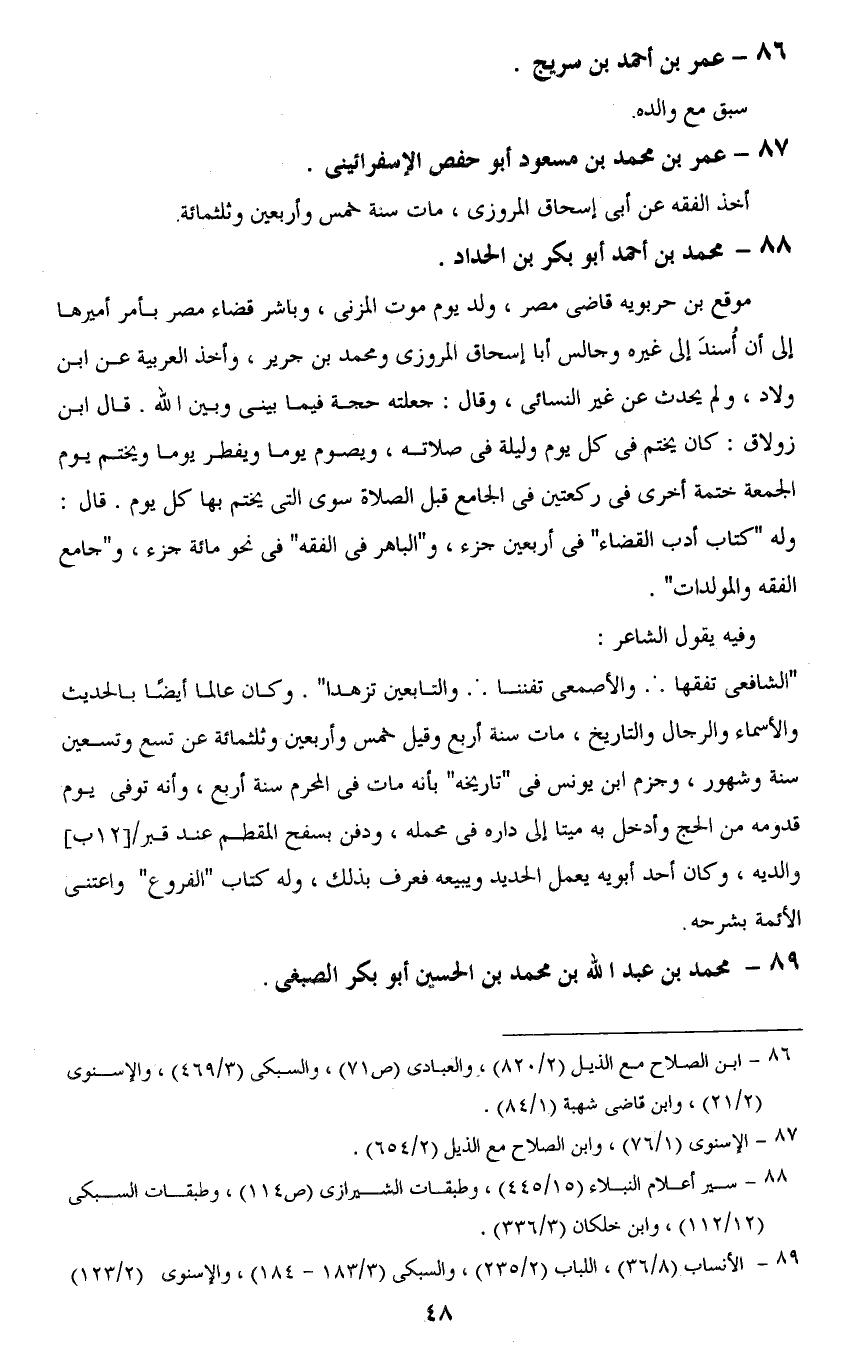 ٨٦ – عمر بن أحمد بن سريج .
سبق مع والده.
٨٧ – عمر بن محمد بن مسعود أبو حفص الإسفرائينى .
أخذ الفقه عن أبى إسحاق المروزى ، مات سنة خمس وأربعين وثلثمائة.
٨٨ – محمد بن أحمد أبو بكر بن الحداد .
موقع بن حربويه قاضى مصر ، ولد يوم موت المزنى ، وباشر قضاء مصر بأمر أميرها
إلى أن أُسندَ إلى غيره وجالس أبا إسحاق المروزى ومحمد بن جرير ، وأخذ العربية عن ابن
ولاد ، ولم يحدث عن غير النسائى ، وقال : جعلته حجة فيما بينى وبين الله . قال ابن
زولاق : كان يختم فى كل يوم وليلة فى صلاته ، ويصوم يوما ويفطر يوما ويختم يوم
الجمعة ختمة أخرى فى ركعتين فى الجامع قبل الصلاة سوى التى يختم بها كل يوم . قال :
وله "كتاب أدب القضاء" فى أربعين جزء ، و"الباهر فى الفقه" فى نحو مائة جزء ، و"جامع
الفقه والمولدات" .
وفيه يقول الشاعر :
"الشافعى تفقها .·. والأصمعى تفننا .·. والتابعين تزهدا" . وكان عالما أيضًا بالحديث
والأسماء والرجال والتاريخ ، مات سنة أربع وقيل خمس وأربعين وثلثمائة عن تسع وتسعين
سنة وشهور ، وجزم ابن يونس فى "تاريخه" بأنه مات فى المحرم سنة أربع ، وأنه توفى يوم
قدومه من الحج وأدخل به ميتا إلى داره فى محمله ، ودفن بسفح المقطم عند قبر/[١٢ب]
والديه ، وكان أحد أبويه يعمل الحديد ويبيعه فعرف بذلك ، وله كتاب "الفروع" واعتنى
الأئمة بشرحه.
٨٩ – محمد بن عبد الله بن محمد بن الحسين أبو بكر الصبغى .
٨٦ – ابن الصلاح مع الذيل (٨٢٠/٢) ، والعبادى (ص٧١) ، والسبكى (٤٦٩/٣) ، والإسنوى
(٢١/٢) ، وابن قاضى شهبة (٨٤/١) .
٨٧ – الإسنوى (٧٦/١) ، وابن الصلاح مع الذيل (٦٥٤/٢) .
٨٨ – سير أعلام النبلاء (٤٤٥/١٥) ، وطبقات الشيرازى (ص١١٤) ، وطبقات السبكى
(١١٢/١٢) ، وابن خلكان (٣٣٦/٣) .
٨٩ – الأنساب (٣٦/٨) ، اللباب (٢٣٥/٢) ، والسبكى (١٨٣/٣ – ١٨٤) ، والإسنوى (١٢٣/٢)
٤٨